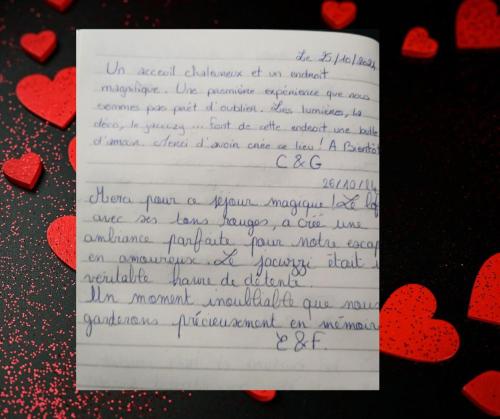 Le 25/10/2024
Un acceuil chaleureux et un endroit
magnifique. Une première expérience que nous
sommes pas prêt d'oublier. Les lumières, la
déco, le jacuzzy ... font de cette endroit une bulle
d'amour. Merci d'avoir crée ce lieu ! A Bientôt
C & G
26/10/24
Merci pour ce séjour magique ! Le
avec ses tons rouges, a créé une
ambiance parfaite pour notre escap
en amoureux. Le jacuzzi était
véritable havre de détente.
Un moment inoubliable que nous
garderons précieusement en mémoir
& F.